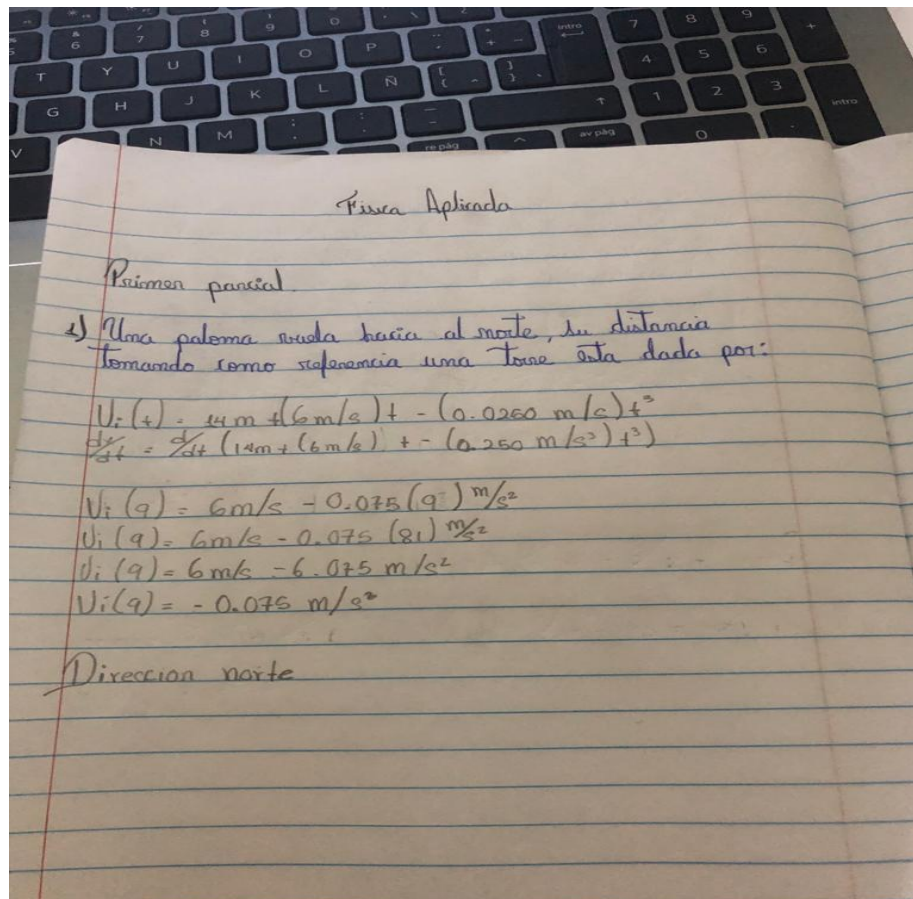 6
7
8
9
0
intro
7
8
9
+
T
Y
U
I
O
P
4
5
6
G
H
J
K
L
Ñ
1
2
3
intro
V
N
M
re pág
av pág
0
Fisica Aplicada
Primer parcial
1) Una paloma vuela hacia al norte, su distancia
tomando como referencia una torre esta dada por:
Vi(t) = 14m + (6m/s)t - (0.0250 m/s)t³
dv/dt = d/dt (14m + (6m/s) t - (0.250 m/s³)t³)
Vi(9) = 6m/s - 0.075(9) m/s²
Vi(9) = 6m/s - 0.075 (81) m/s²
Vi(9) = 6m/s - 6.075 m/s²
Vi(9) = - 0.075 m/s²
Direccion norte